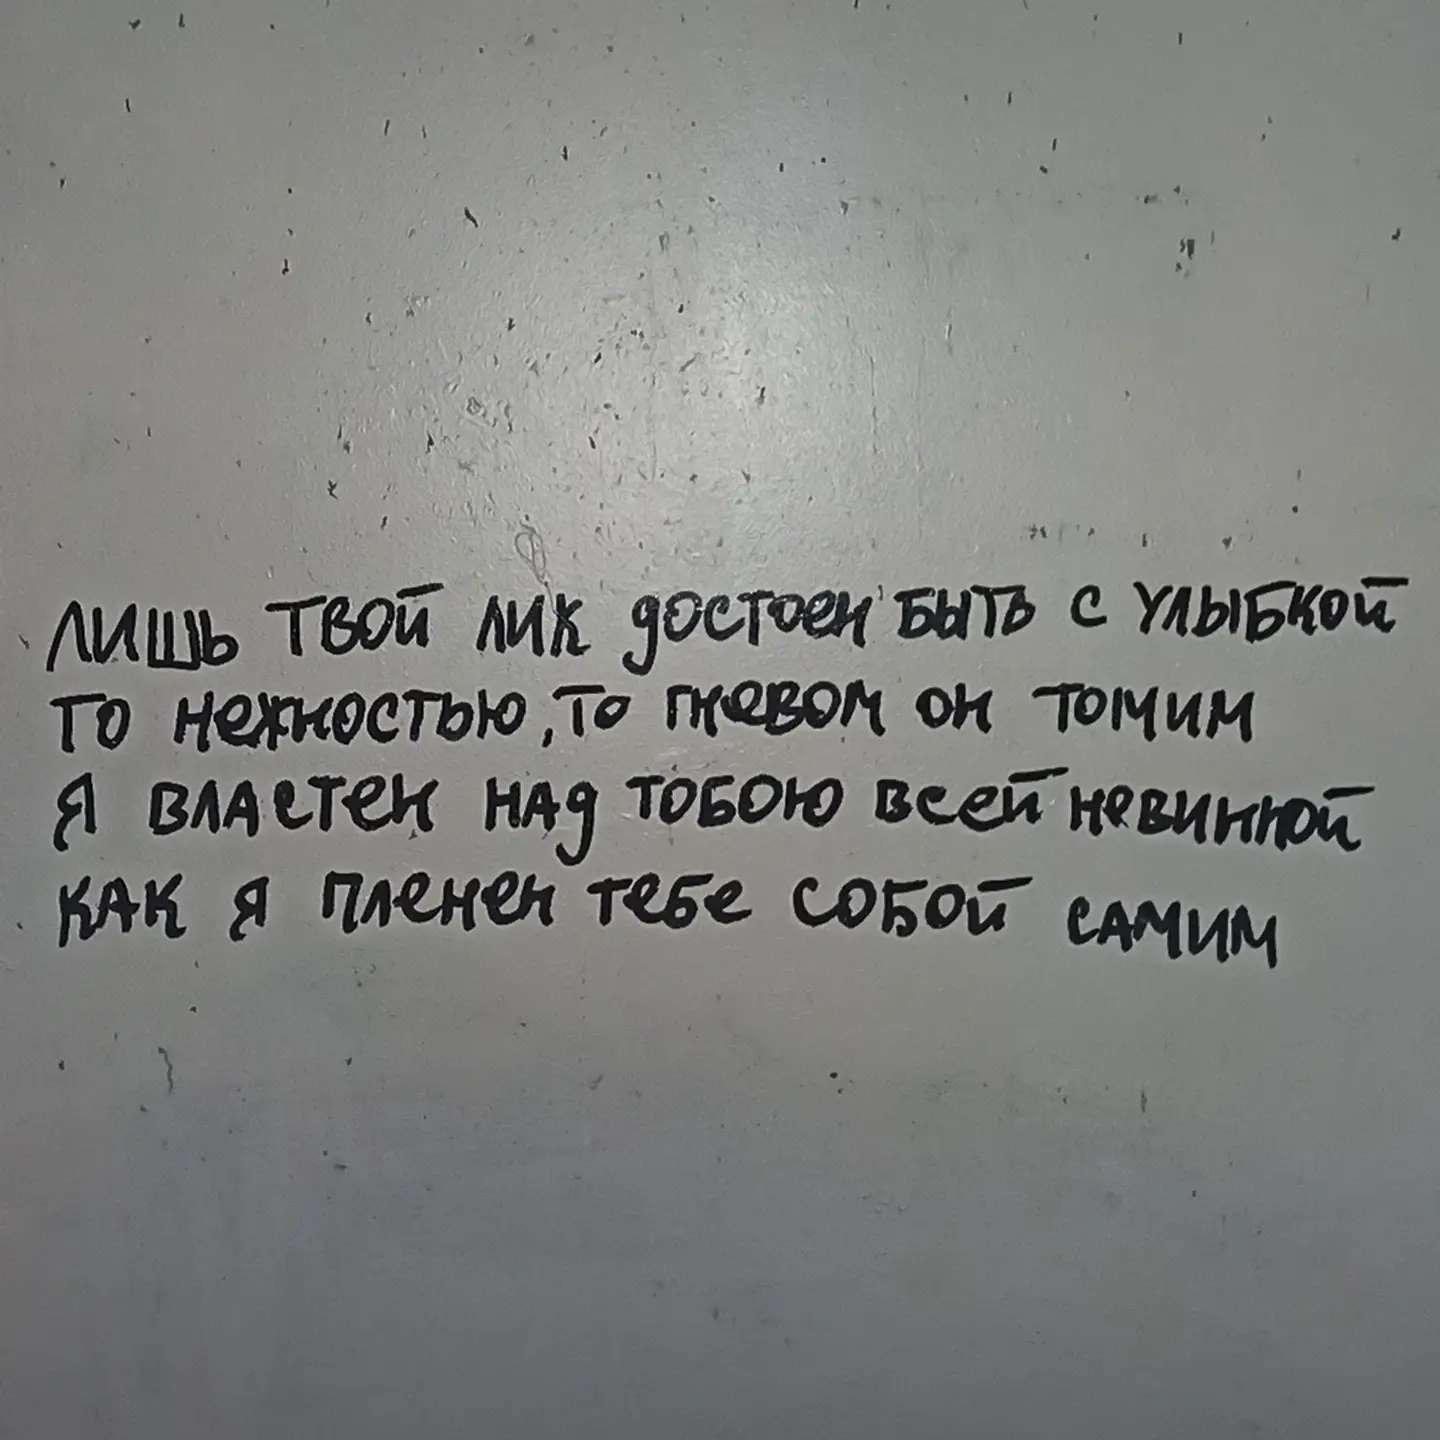 лишь твой лик достоен быть с улыбкой
то нежностью, то гневом он томим
я властен над тобою всей невинной
как я пленен тебе собой самим